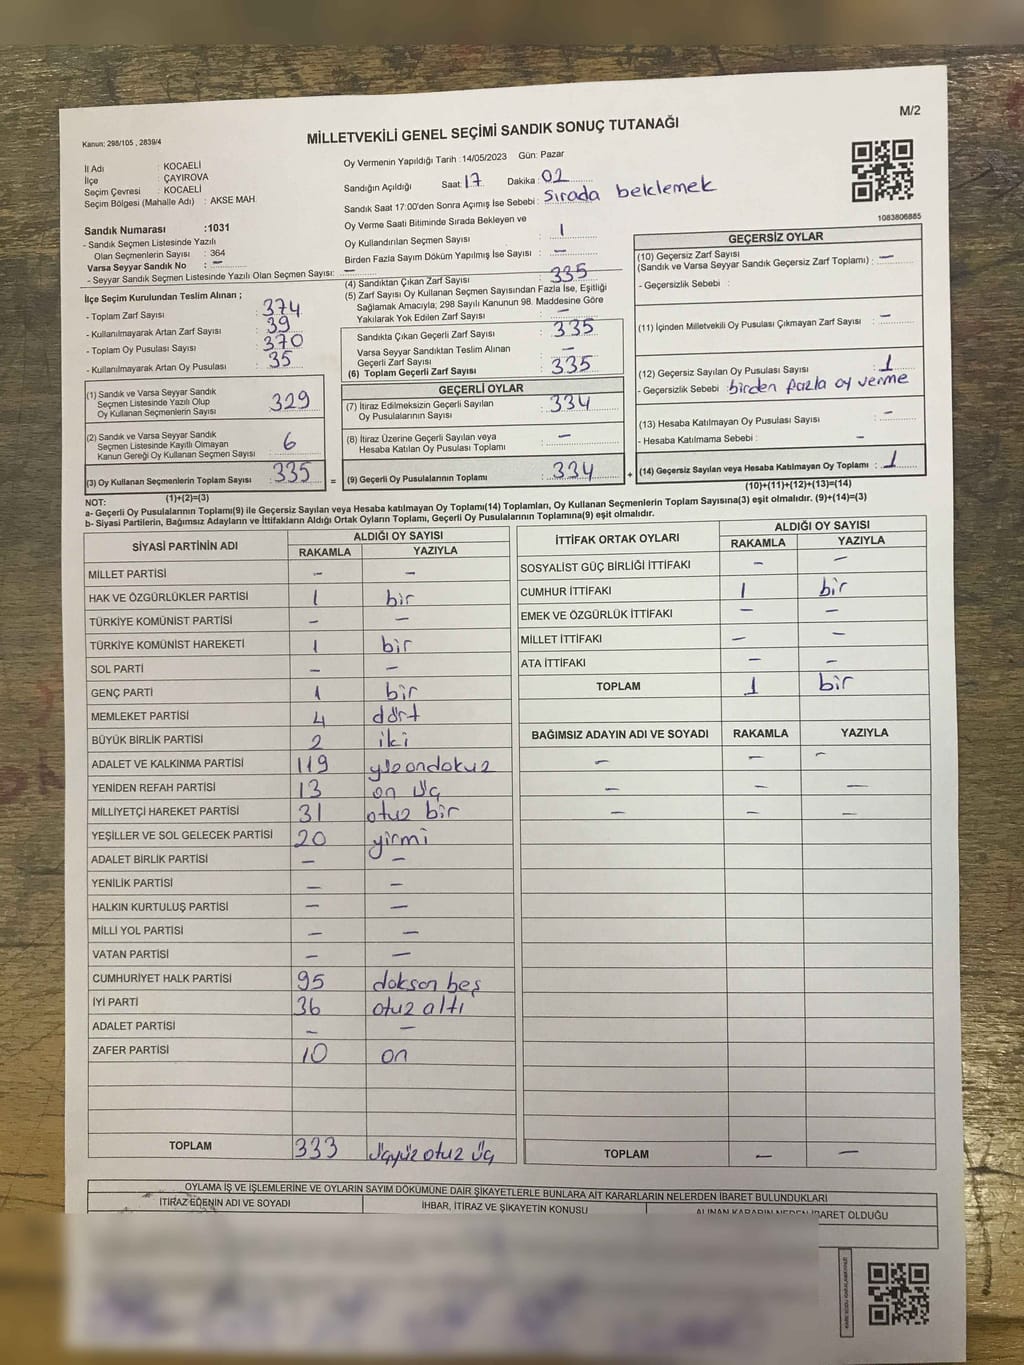 M/2
Kanun: 298/105 , 2839/4
MİLLETVEKİLİ GENEL SEÇİMİ SANDIK SONUÇ TUTANAĞI
İl Adı : KOCAELİ
İlçe : ÇAYIROVA
Seçim Çevresi : KOCAELİ
Seçim Bölgesi (Mahalle Adı) : AKSE MAH.
Sandık Numarası :1031
- Sandık Seçmen Listesinde Yazılı
Olan Seçmenlerin Sayısı : 364
Varsa Seyyar Sandık No : -
- Seyyar Sandık Seçmen Listesinde Yazılı Olan Seçmen Sayısı: -
Oy Vermenin Yapıldığı Tarih :14/05/2023 Gün: Pazar
Sandığın Açıldığı Saat: 17 Dakika : 02
Sandık Saat 17:00'den Sonra Açılmış İse Sebebi : Sırada beklemek
Oy Verme Saati Bitiminde Sırada Bekleyen ve
Oy Kullandırılan Seçmen Sayısı : 1
Birden Fazla Sayım Döküm Yapılmış İse Sayısı : -
1083806885
İlçe Seçim Kurulundan Teslim Alınan ;
- Toplam Zarf Sayısı : 374
- Kullanılmayarak Artan Zarf Sayısı : 39
- Toplam Oy Pusulası Sayısı : 370
- Kullanılmayarak Artan Oy Pusulası : 35
(1) Sandık ve Varsa Seyyar Sandık
Seçmen Listesinde Yazılı Olup
Oy Kullanan Seçmenlerin Sayısı : 329
(2) Sandık ve Varsa Seyyar Sandık
Seçmen Listesinde Kayıtlı Olmayan
Kanun Gereği Oy Kullanan Seçmen Sayısı : 6
(3) Oy Kullanan Seçmenlerin Toplam Sayısı : 335
(1)+(2)=(3)
(4) Sandıktan Çıkan Zarf Sayısı : 335
(5) Zarf Sayısı Oy Kullanan Seçmen Sayısından Fazla İse, Eşitliği
Sağlamak Amacıyla; 298 Sayılı Kanunun 98. Maddesine Göre
Yakılarak Yok Edilen Zarf Sayısı : -
Sandıkta Çıkan Geçerli Zarf Sayısı : 335
Varsa Seyyar Sandıktan Teslim Alınan
Geçerli Zarf Sayısı : -
(6) Toplam Geçerli Zarf Sayısı : 335
GEÇERLİ OYLAR
(7) İtiraz Edilmeksizin Geçerli Sayılan
Oy Pusulalarının Sayısı : 334
(8) İtiraz Üzerine Geçerli Sayılan veya
Hesaba Katılan Oy Pusulası Toplamı : -
= (9) Geçerli Oy Pusulalarının Toplamı : 334
GEÇERSİZ OYLAR
(10) Geçersiz Zarf Sayısı
(Sandık ve Varsa Seyyar Sandık Geçersiz Zarf Toplamı) : -
- Geçersizlik Sebebi :
(11) İçinden Milletvekili Oy Pusulası Çıkmayan Zarf Sayısı : -
(12) Geçersiz Sayılan Oy Pusulası Sayısı : 1
- Geçersizlik Sebebi : birden fazla oy verme
(13) Hesaba Katılmayan Oy Pusulası Sayısı : -
- Hesaba Katılmama Sebebi : -
+ (14) Geçersiz Sayılan veya Hesaba Katılmayan Oy Toplamı : 1
(10)+(11)+(12)+(13)=(14)
NOT:
a- Geçerli Oy Pusulalarının Toplamı(9) ile Geçersiz Sayılan veya Hesaba katılmayan Oy Toplamı(14) Toplamları, Oy Kullanan Seçmenlerin Toplam Sayısına(3) eşit olmalıdır. (9)+(14)=(3)
b- Siyasi Partilerin, Bağımsız Adayların ve İttifakların Aldığı Ortak Oyların Toplamı, Geçerli Oy Pusulalarının Toplamına(9) eşit olmalıdır.
SİYASİ PARTİNİN ADI ALDIĞI OY SAYISI
RAKAMLA YAZIYLA
MİLLET PARTİSİ - -
HAK VE ÖZGÜRLÜKLER PARTİSİ 1 bir
TÜRKİYE KOMÜNİST PARTİSİ - -
TÜRKİYE KOMÜNİST HAREKETİ 1 bir
SOL PARTİ - -
GENÇ PARTİ 1 bir
MEMLEKET PARTİSİ 4 dört
BÜYÜK BİRLİK PARTİSİ 2 iki
ADALET VE KALKINMA PARTİSİ 119 yüzondokuz
YENİDEN REFAH PARTİSİ 13 on üç
MİLLİYETÇİ HAREKET PARTİSİ 31 otuz bir
YEŞİLLER VE SOL GELECEK PARTİSİ 20 yirmi
ADALET BİRLİK PARTİSİ - -
YENİLİK PARTİSİ - -
HALKIN KURTULUŞ PARTİSİ - -
MİLLİ YOL PARTİSİ - -
VATAN PARTİSİ - -
CUMHURİYET HALK PARTİSİ 95 doksan beş
İYİ PARTİ 36 otuz altı
ADALET PARTİSİ - -
ZAFER PARTİSİ 10 on
TOPLAM 333 üçyüz otuz üç
İTTİFAK ORTAK OYLARI ALDIĞI OY SAYISI
RAKAMLA YAZIYLA
SOSYALİST GÜÇ BİRLİĞİ İTTİFAKI - -
CUMHUR İTTİFAKI 1 bir
EMEK VE ÖZGÜRLÜK İTTİFAKI - -
MİLLET İTTİFAKI - -
ATA İTTİFAKI - -
TOPLAM 1 bir
BAĞIMSIZ ADAYIN ADI VE SOYADI RAKAMLA YAZIYLA
- - -
- - -
- - -
TOPLAM - -
OYLAMA İŞ VE İŞLEMLERİNE VE OYLARIN SAYIM DÖKÜMÜNE DAİR ŞİKAYETLERLE BUNLARA AİT KARARLARIN NELERDEN İBARET BULUNDUKLARI
İTİRAZ EDENİN ADI VE SOYADI İHBAR, İTİRAZ VE ŞİKAYETİN KONUSU ALINAN KARARIN NEDEN İBARET OLDUĞU